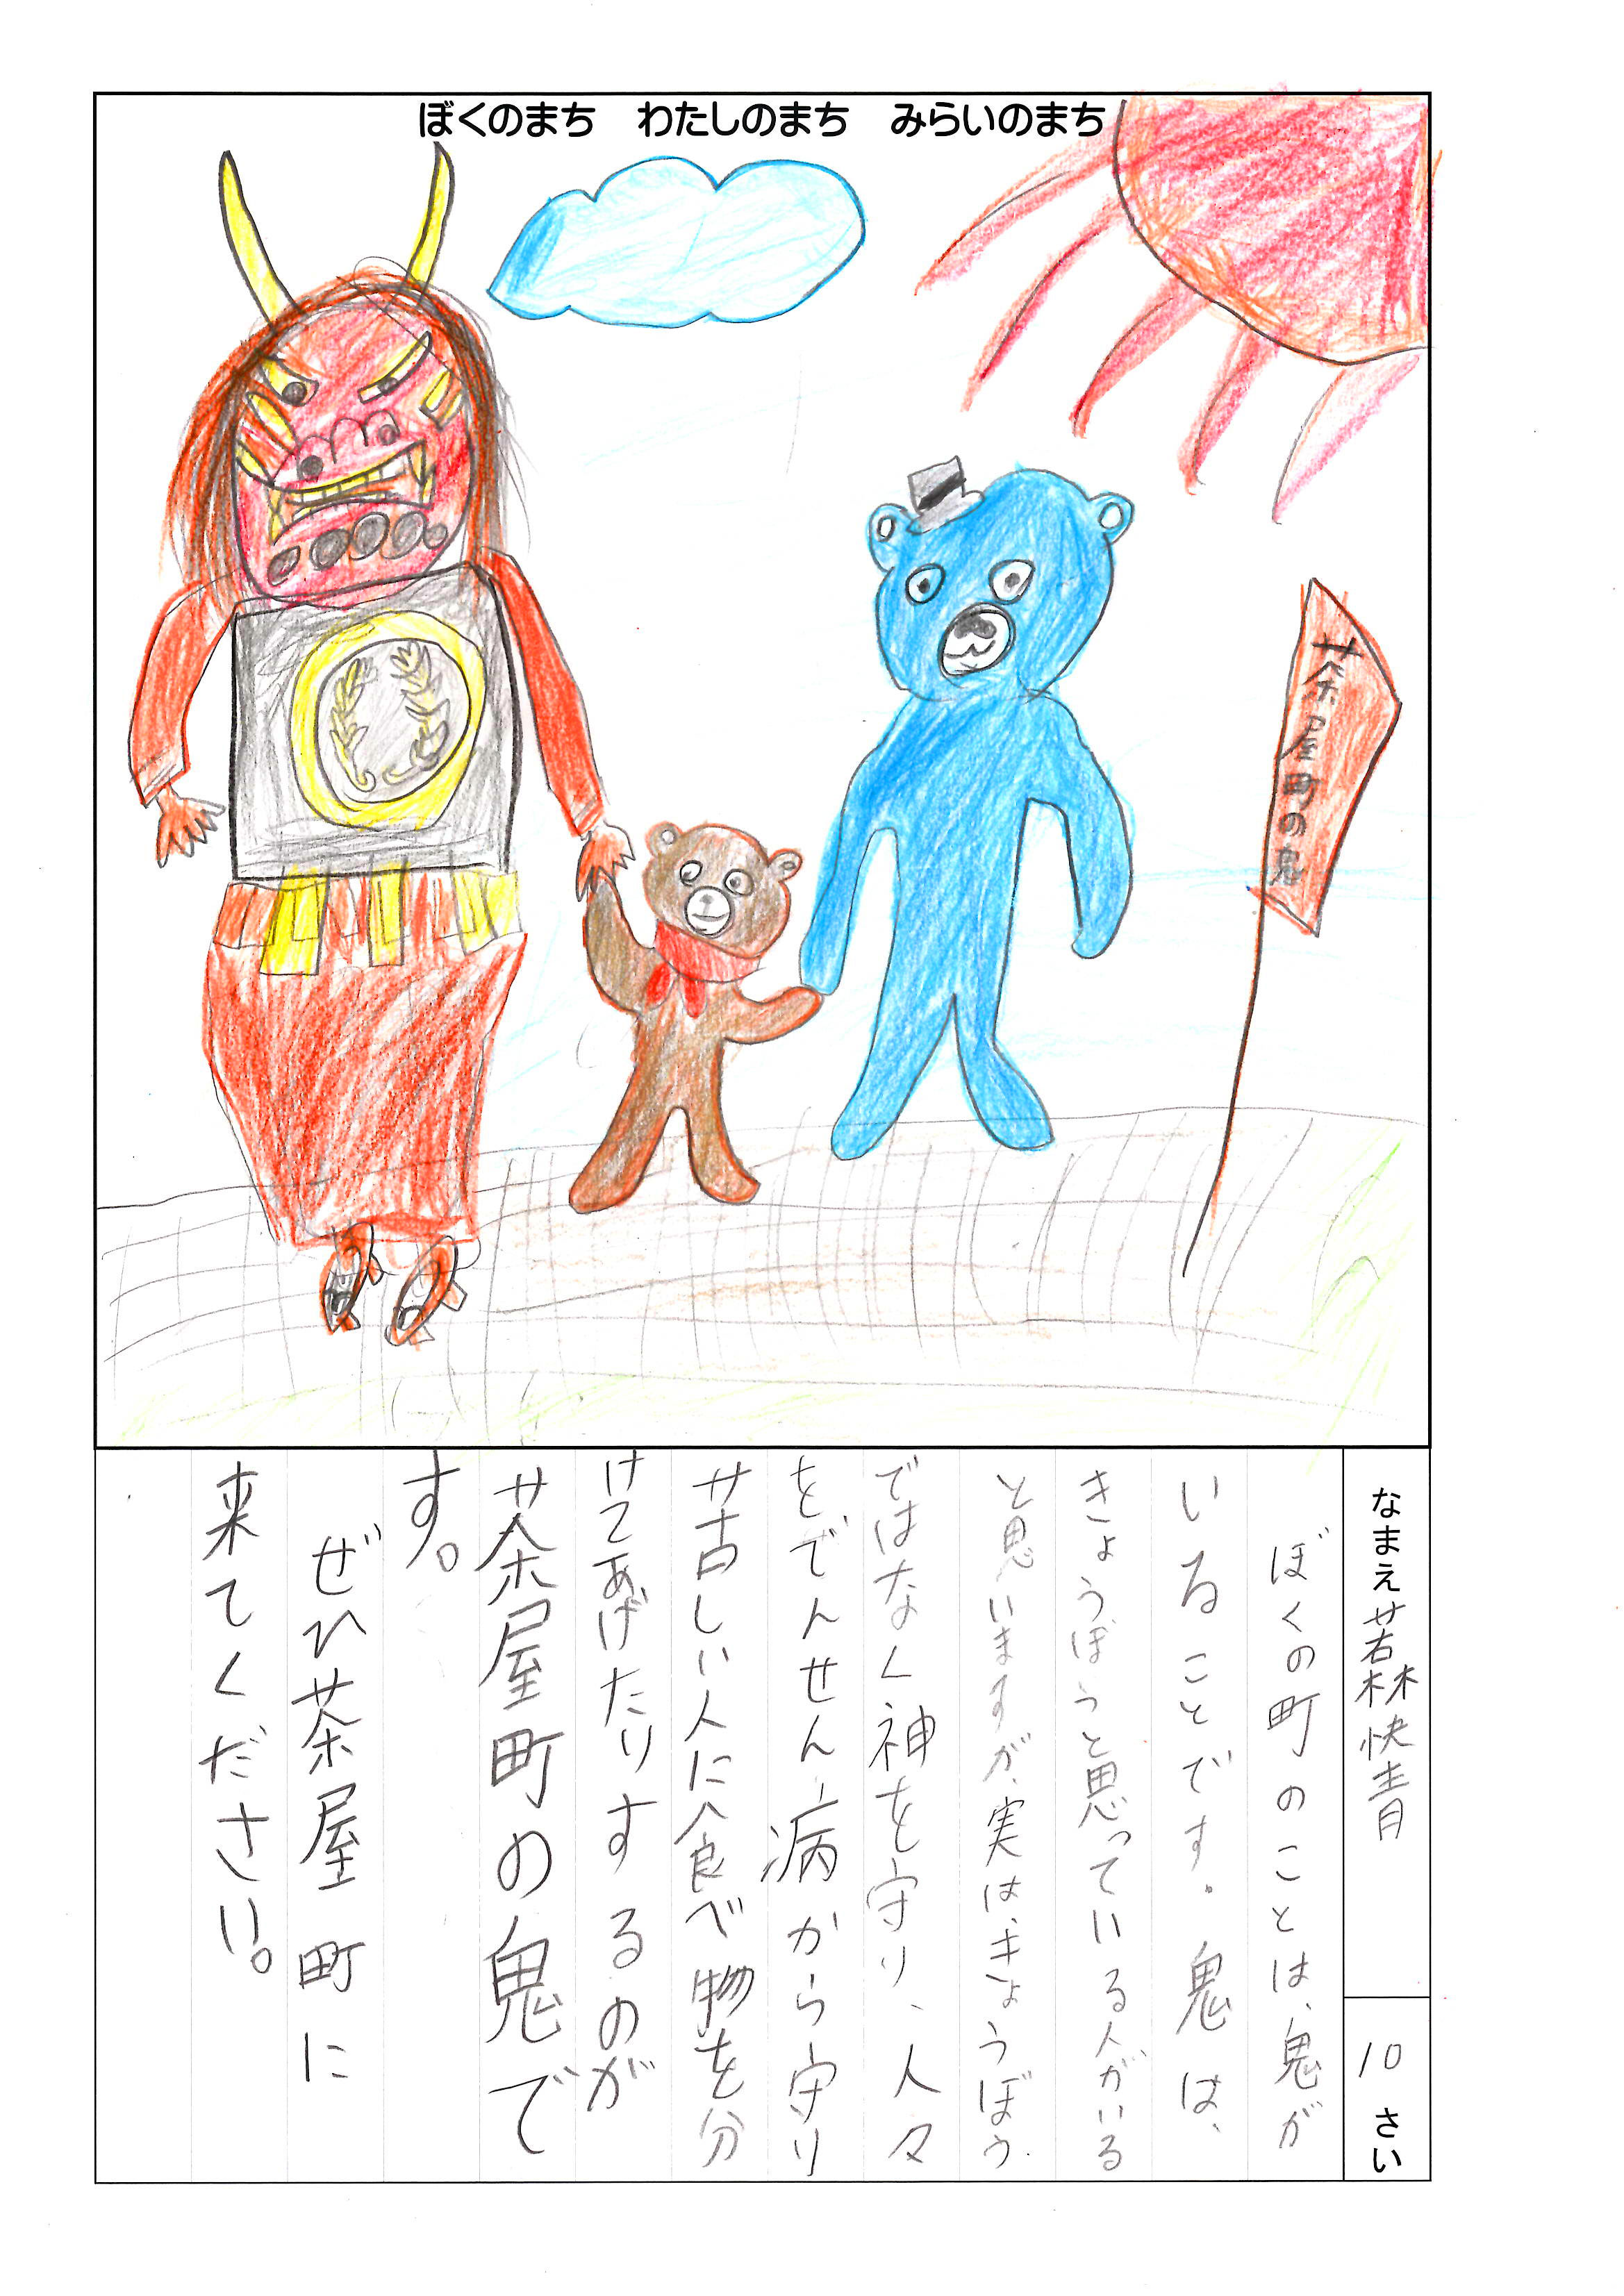 ぼくのまち　わたしのまち　みらいのまち
茶屋町の鬼
なまえ 若林快青
10 さい
ぼくの町のことは、鬼が
いることです。鬼は、
きょうぼうと思っている人がいる
と思いますが、実は、きょうぼう
ではなく神を守り、人々
をでんせん病から守り
苦しい人に食べ物を分
けてあげたりするのが
茶屋町の鬼で
す。
ぜひ茶屋町に
来てください。